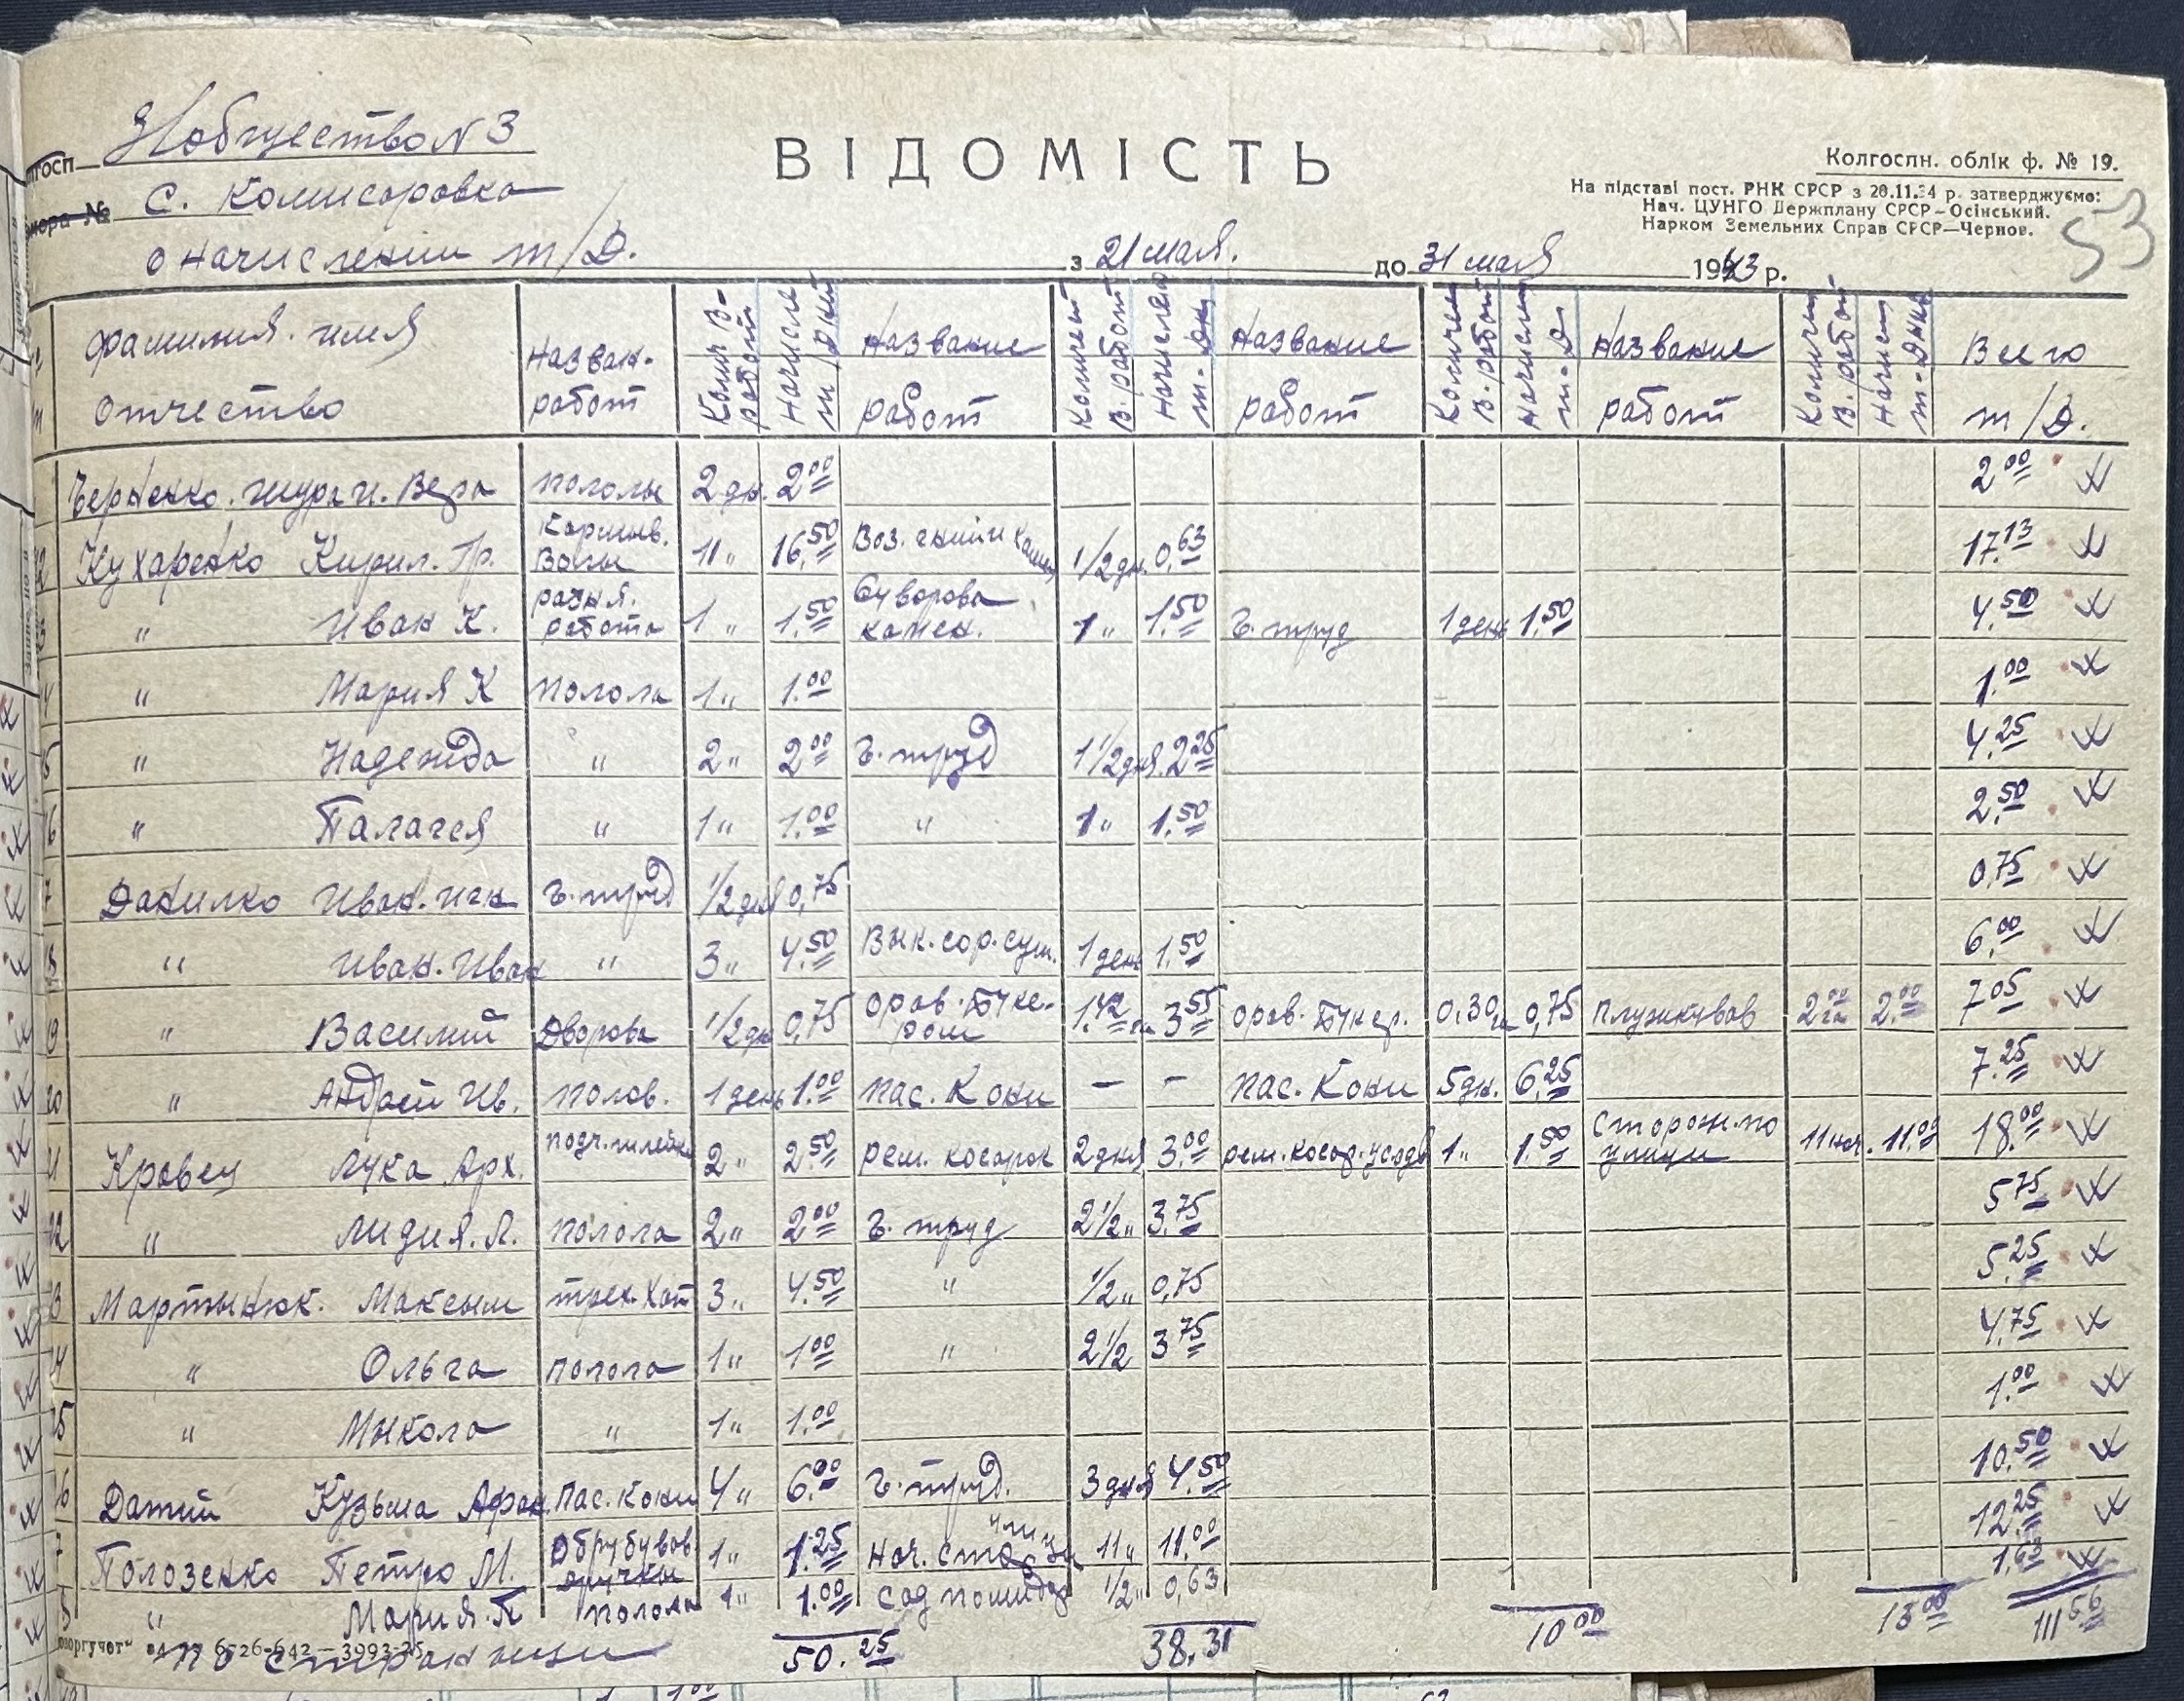 ВІДОМІСТЬ
Колгоспн. облік ф. № 19.
На підставі пост. РНК СРСР з 20.11.34 р. затверджуємо:
Нач. ЦУНГО Держплану СРСР—Осінський.
Нарком Земельних Справ СРСР—Чернов.
53
общество N 3
с. Комисаровка
о начислении т/д. з 21 мая. до 31 мая 1943 р.
Фамилия. имя отчество Назван. работ Колич В. работ Начисле т/дни Название работ Количест В. работ Начислено т-дни Название работ Количест В. работ Начислен т-д Название работ Количест В. работ Начисл т-дни Всего т/д.
Черненко. Шура и. Вера пололы 2 дн. 2.00 2.00
2 Кухаренко Кирил. Гр. Кормив. Волы 11 " 16.50 Воз. 1/2 дн. 0,63 17.13
" Иван К. разн.я. работа 1 " 1.50 камен. 1 " 1.50 Г. труд 1 день 1.50 4.50
4 " Мария К полола 1 " 1.00 1.00
5 " Надежда " 2 " 2.00 Г. труд 1 1/2 дня 2.25 4.25
6 " Палагея " 1 " 1.00 " 1 " 1.50 2.50
7 Данилко Иван. Г. труд 1/2 дня 0,75 0.75
8 " Иван. Иван " 3 " 4.50 1 день 1.50 6.00
9 " Василий Дворова 1/2 дн 0,75 орав. Букером 1.42 га 3.55 орав. Букер. 0,30 га 0,75 плужкував 2.00 га 2.00 7.05
10 " Андрей Ив. полов. 1 день 1.00 пас. Кони — — пас. Кони 5 дн. 6.25 7.25
11 Кравец Лука Арх. 2 " 2.50 рем. косарок 2 дня 3.00 1 " 1.50 Сторож. по улици 11 ноч. 11.00 18.00
12 " Лидия. Л. полола 2 " 2.00 Г. труд 2 1/2 " 3.75 5.75
13 Мартынюк. Максым 3 " 4.50 " 1/2 " 0,75 5.25
14 " Ольга полола 1 " 1.00 " 2 1/2 3.75 4.75
15 " Мыкола " 1 " 1.00 1.00
16 Датий Кузьма Афан. Пас. Кони 4 " 6.00 Г. труд. 3 дня 4.50 10.50
7 Полозенко Петро М. Обрубував 1 " 1.25 Ноч. улици 11 " 11.00 12.25
" Мария. П полола 1 " 1.00 1/2 " 0,63 1.63
6526-642—3993-25
50.25 38.31 10.00 13.00 111.56